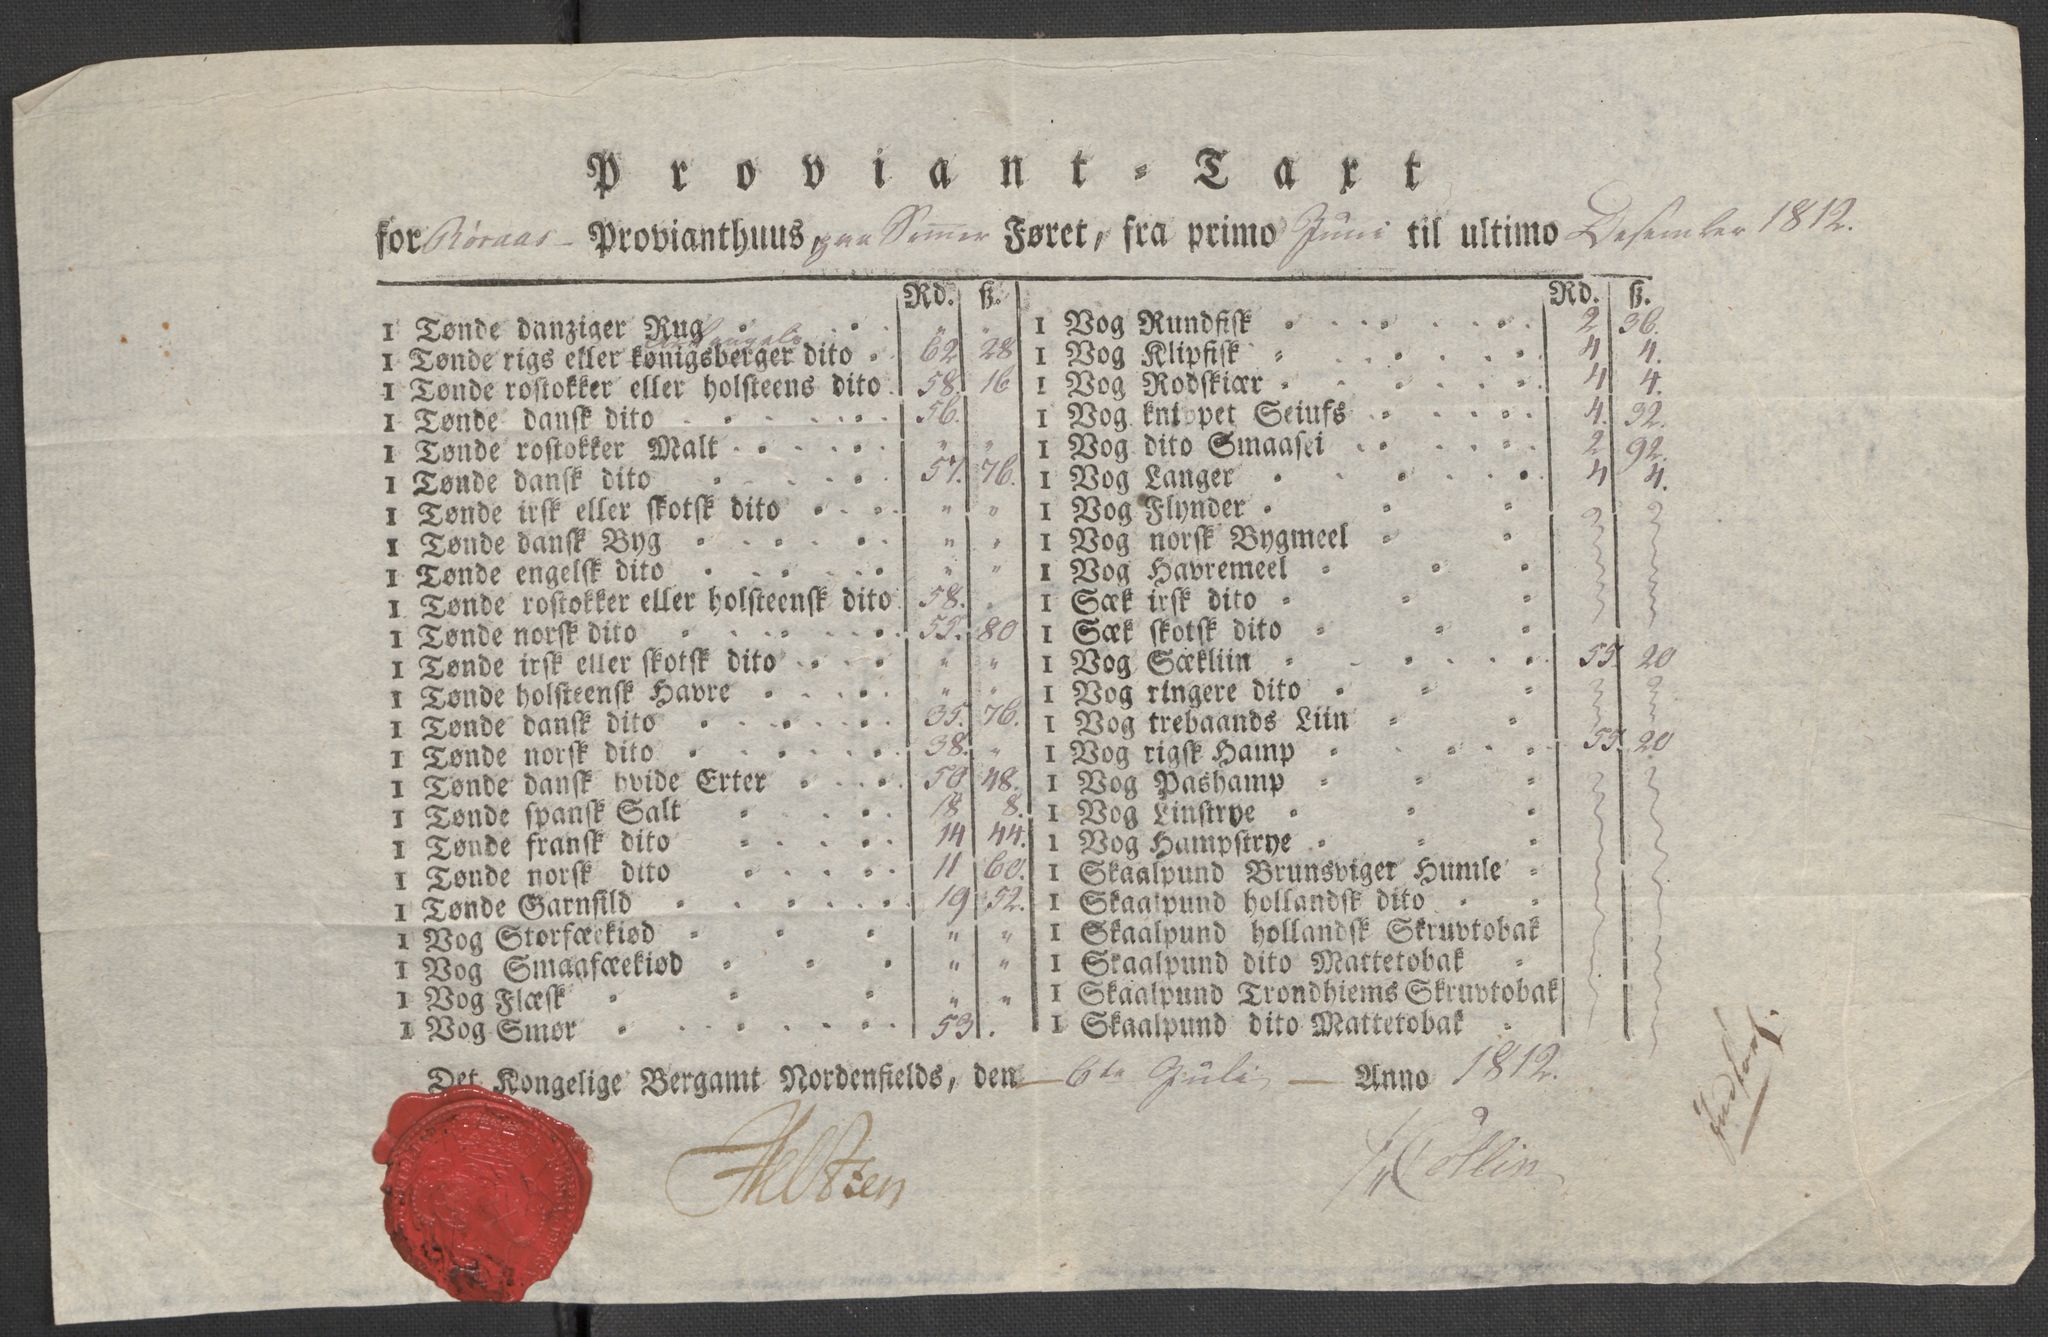 Proviant-Taxt
for Røraas Provianthuus, paa Sommer Føret, fra primo Juni til ultimo Desember 1812.
Rd. ß.
1 Tønde danziger Rug " "
Archangels
1 Tønde rigs eller kønigsberger dito 62 28
1 Tønde rostokker eller holsteens dito 58. 16
1 Tønde dansk dito 56.
1 Tønde rostokker Malt " "
1 Tønde dansk dito 57. 76.
1 Tønde irsk eller skotsk dito " "
1 Tønde dansk Byg " "
1 Tønde engelsk dito " "
1 Tønde rostokker eller holsteensk dito 58. "
1 Tønde norsk dito 55. 80
1 Tønde irsk eller skotsk dito " "
1 Tønde holsteensk Havre " "
1 Tønde dansk dito 35. 76.
1 Tønde norsk dito 38. "
1 Tønde dansk hvide Erter 50 48.
1 Tønde spansk Salt 18 8.
1 Tønde fransk dito 14 44.
1 Tønde norsk dito 11 60.
1 Tønde Garnsild 19 52.
1 Vog Storfæekiød " "
1 Vog Smaafæekiød " "
1 Vog Flæsk " "
1 Vog Smør 53.
Rd. ß.
1 Vog Rundfisk 2 36.
1 Vog Klipfisk 4 4.
1 Vog Rodskiær 4 4.
1 Vog knippet Seiufs 4. 32.
1 Vog dito Smaasei 2 92.
1 Vog Langer 4 4.
1 Vog Flynder
1 Vog norsk Bygmeel
1 Vog Havremeel
1 Sæk irsk dito
1 Sæk skotsk dito
1 Vog Sækliin 55. 20
1 Vog ringere dito
1 Vog trebaands Liin
1 Vog rigsk Hamp 55. 20
1 Vog Pashamp
1 Vog Linstrye
1 Vog Hampstrye
1 Skaalpund Brunsviger Humle
1 Skaalpund hollandsk dito
1 Skaalpund hollandsk Skruvtobak
1 Skaalpund dito Mattetobak
1 Skaalpund Trondhiems Skruvtobak
1 Skaalpund dito Mattetobak
Det Kongelige Bergamt Nordenfields, den 6te Juli Anno 1812.
Collin